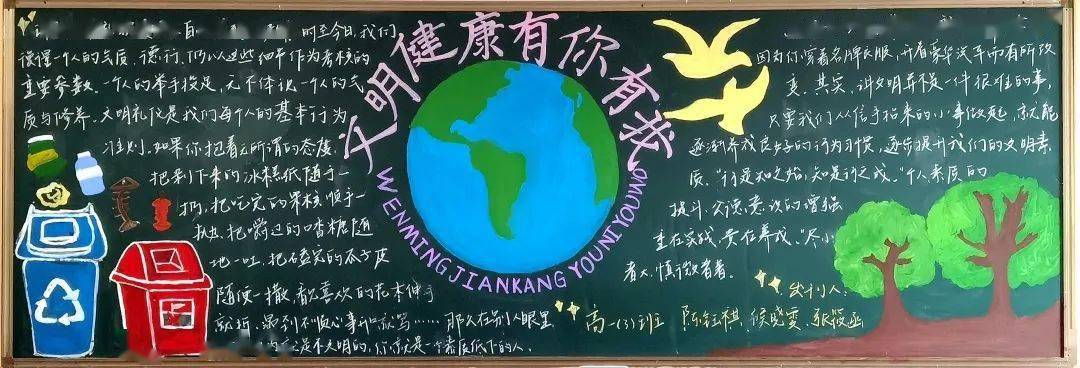 文明健康有你有我
WENMING JIANKANG YOUNI YOUWO
时至今日，我们
往往一个人的言辞、德行，
重要参数。一个人的举手投足，无不体现一个人的气
质与修养。文明礼仪是我们每个人的基本行为
准则。如果你抱着无所谓的态度，
把剥下来的冰棒纸随手一
扔，把吃完的果核顺手一
扔，把嚼过的口香糖随
地一吐，把吃完的瓜子皮
随便一撒，看见喜欢的花木伸手
就折，遇到不顺心事和就骂……那么在别人眼里
是不文明的，你就是一个素质低下的人。
因为你穿着名牌衣服，开着豪华汽车而有所改
变。其实，讲文明并不是一件很难的事，
只要我们从信手拈来的小事做起，就能
逐渐养成良好的行为习惯，逐步提升我们的文明素
质。“行是知之始，知是行之成。”个人素质的
提升、公德意识的增强
重在实践，贵在养成。“尽小
者大，慎微者著。
出刊人：
高一(3)班